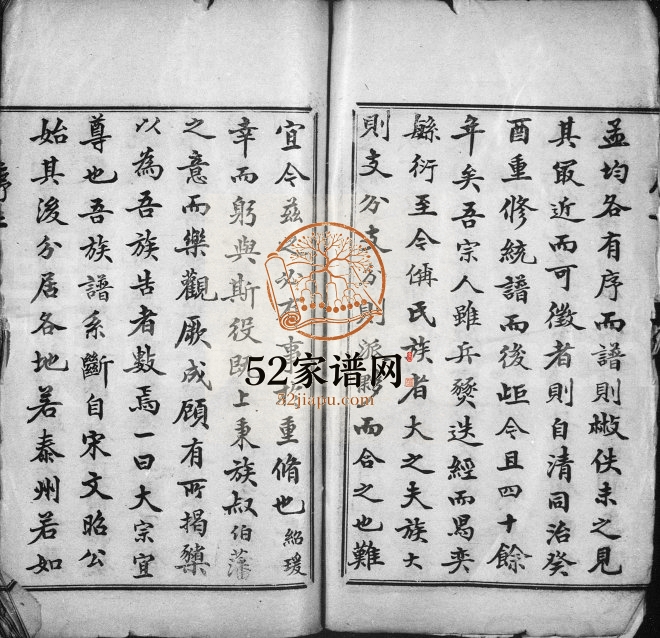 孟均各有序而譜則散佚未之見
其最近而可徵者則自清同治癸
酉重修統譜而後距今且四十餘
年矣吾宗人雖兵燹迭經而馬奕
緜衍至今偁氏族者大之夫族大
則支分支分則派夥而合之也難
宜今茲之必事重脩也紹瑗
幸而躬與斯役既上秉族叔伯藩
之意而樂觀厥成顧有所揭櫫
以為吾族告者數焉一曰大宗宜
尊也吾族譜系斷自宋文昭公
始其後分居各地若泰州若如
52家谱网
52jiapu.com